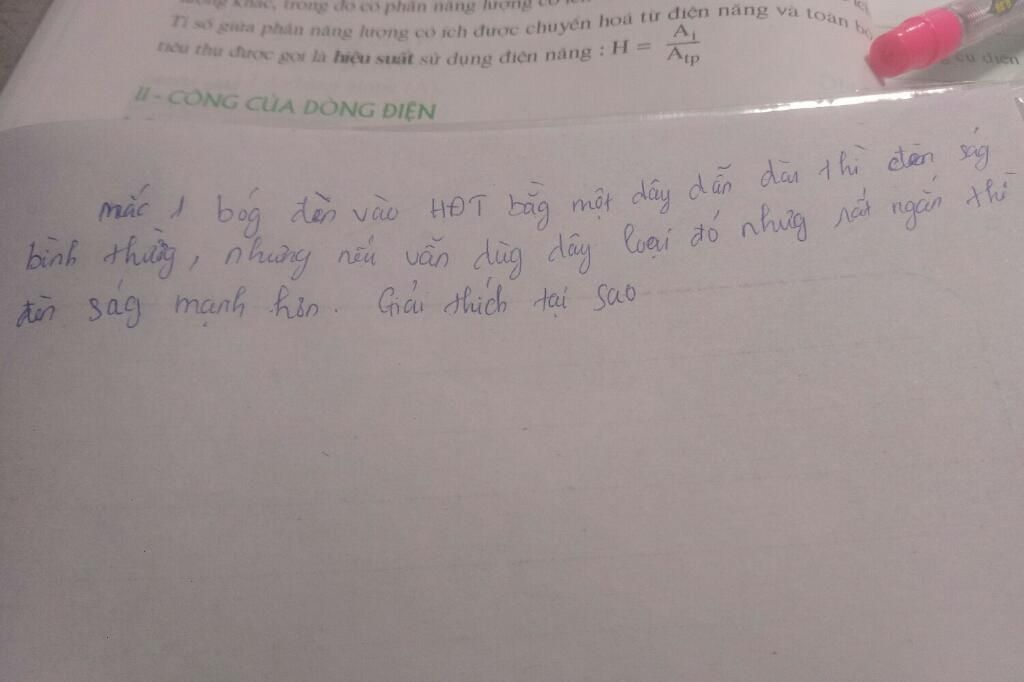 lượng khác, trong đó có phần năng lượng có ích
Tỉ số giữa phần năng lượng có ích được chuyển hoá từ điện năng và toàn bộ
tiêu thụ được gọi là hiệu suất sử dụng điện năng : H = Ai / Atp
cụ điện
II - CÔNG CỦA DÒNG ĐIỆN
mắc 1 bóg đèn vào HĐT bằg một dây dẫn dài thì đèn ság
bình thườg, nhưng nếu vẫn dùg dây loại đó nhưg rất ngắn thì
đèn ság mạnh hơn. Giải thích tại sao